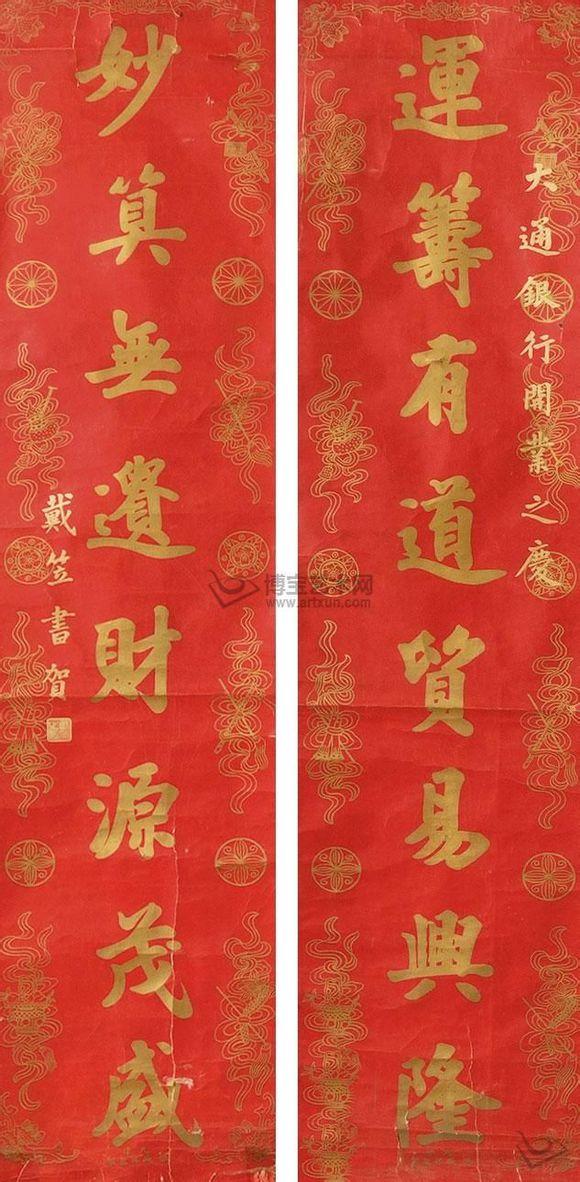 大通銀行開業之慶
運籌有道貿易興隆
妙算無遺財源茂盛
戴笠書賀
博宝艺术网
www.artxun.com